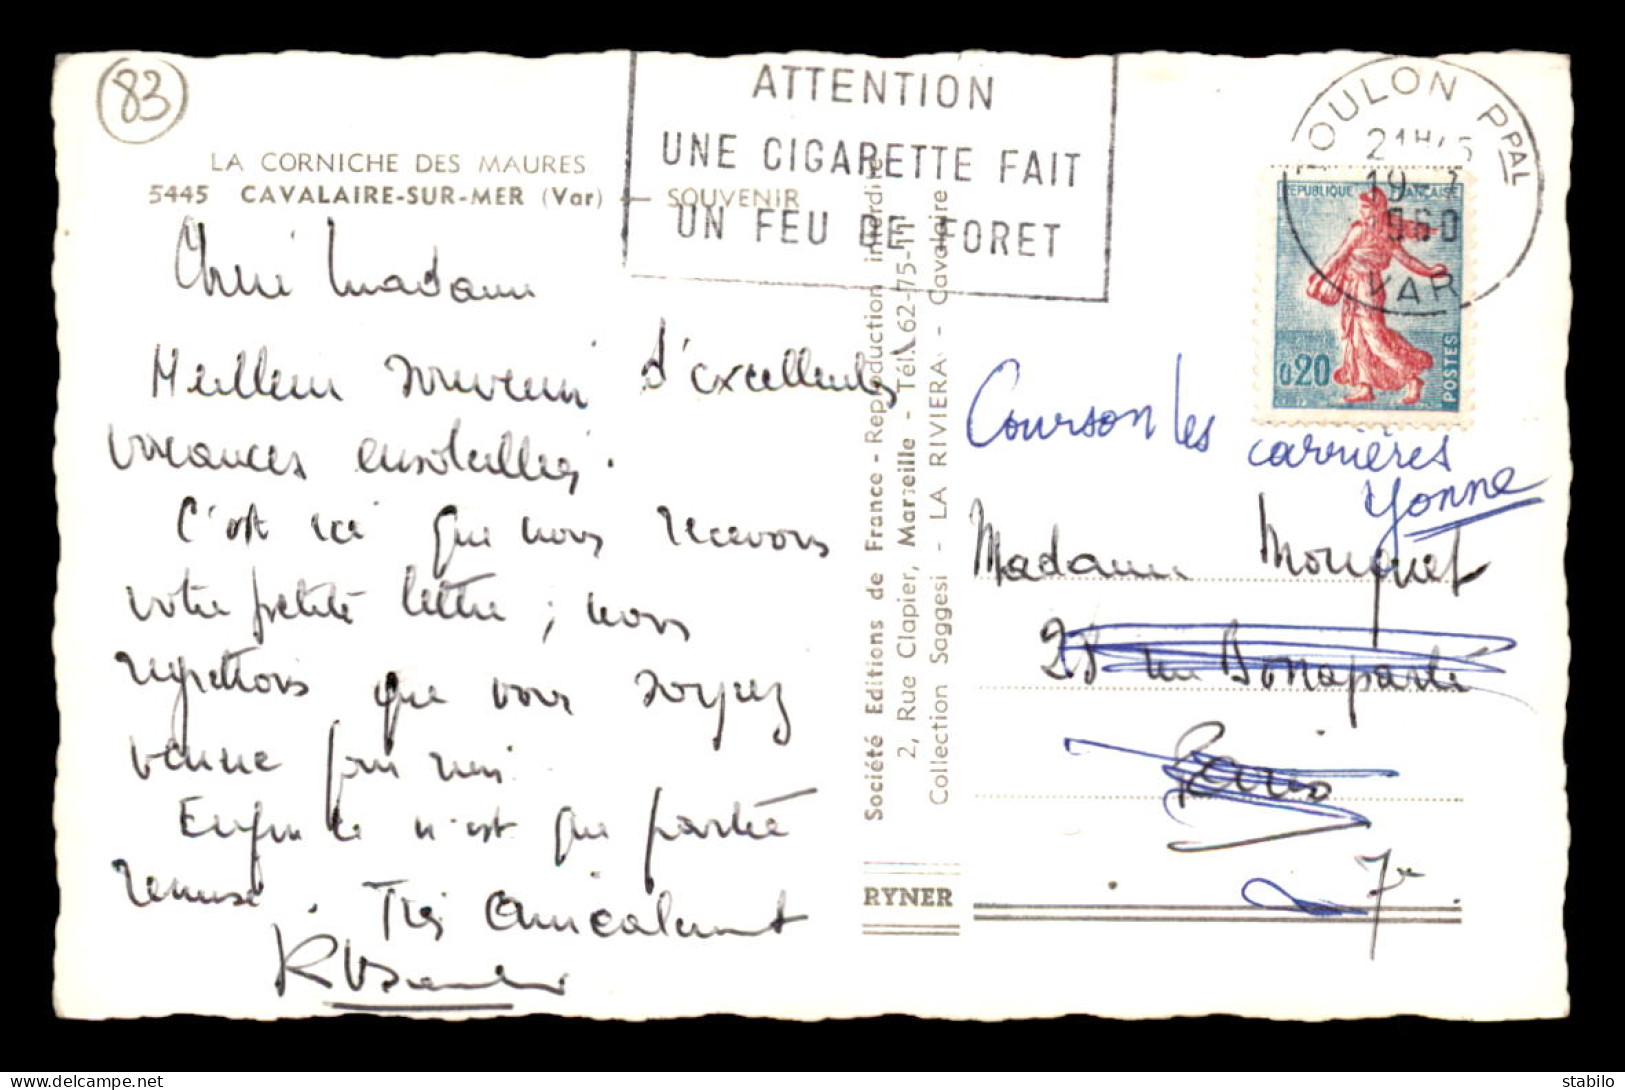 83
LA CORNICHE DES MAURES
5445 CAVALAIRE-SUR-MER (Var) — SOUVENIR
Chère Madame
Meilleur souvenir d'excellentes
vacances ensoleillées.
C'est ici que nous recevons
votre petite lettre ; nous
regrettons que vous soyez
venue pour rien.
Enfin ce n'est que partie
remise. Très amicalement
ATTENTION
UNE CIGARETTE FAIT
UN FEU DE FORET
Société Editions de France - Reproduction interdite
2, Rue Clapier, Marseille - Tél. 62-75-11
Collection Saggesi - LA RIVIERA - Cavalaire
RYNER
TOULON PPAL
21H45
19-7
1960
VAR
REPUBLIQUE FRANÇAISE
0,20
POSTES
Courson les carrières
Yonne
Madame Mouquet
28 rue Bonaparte
Paris
7e
delcampe.net
stabilo